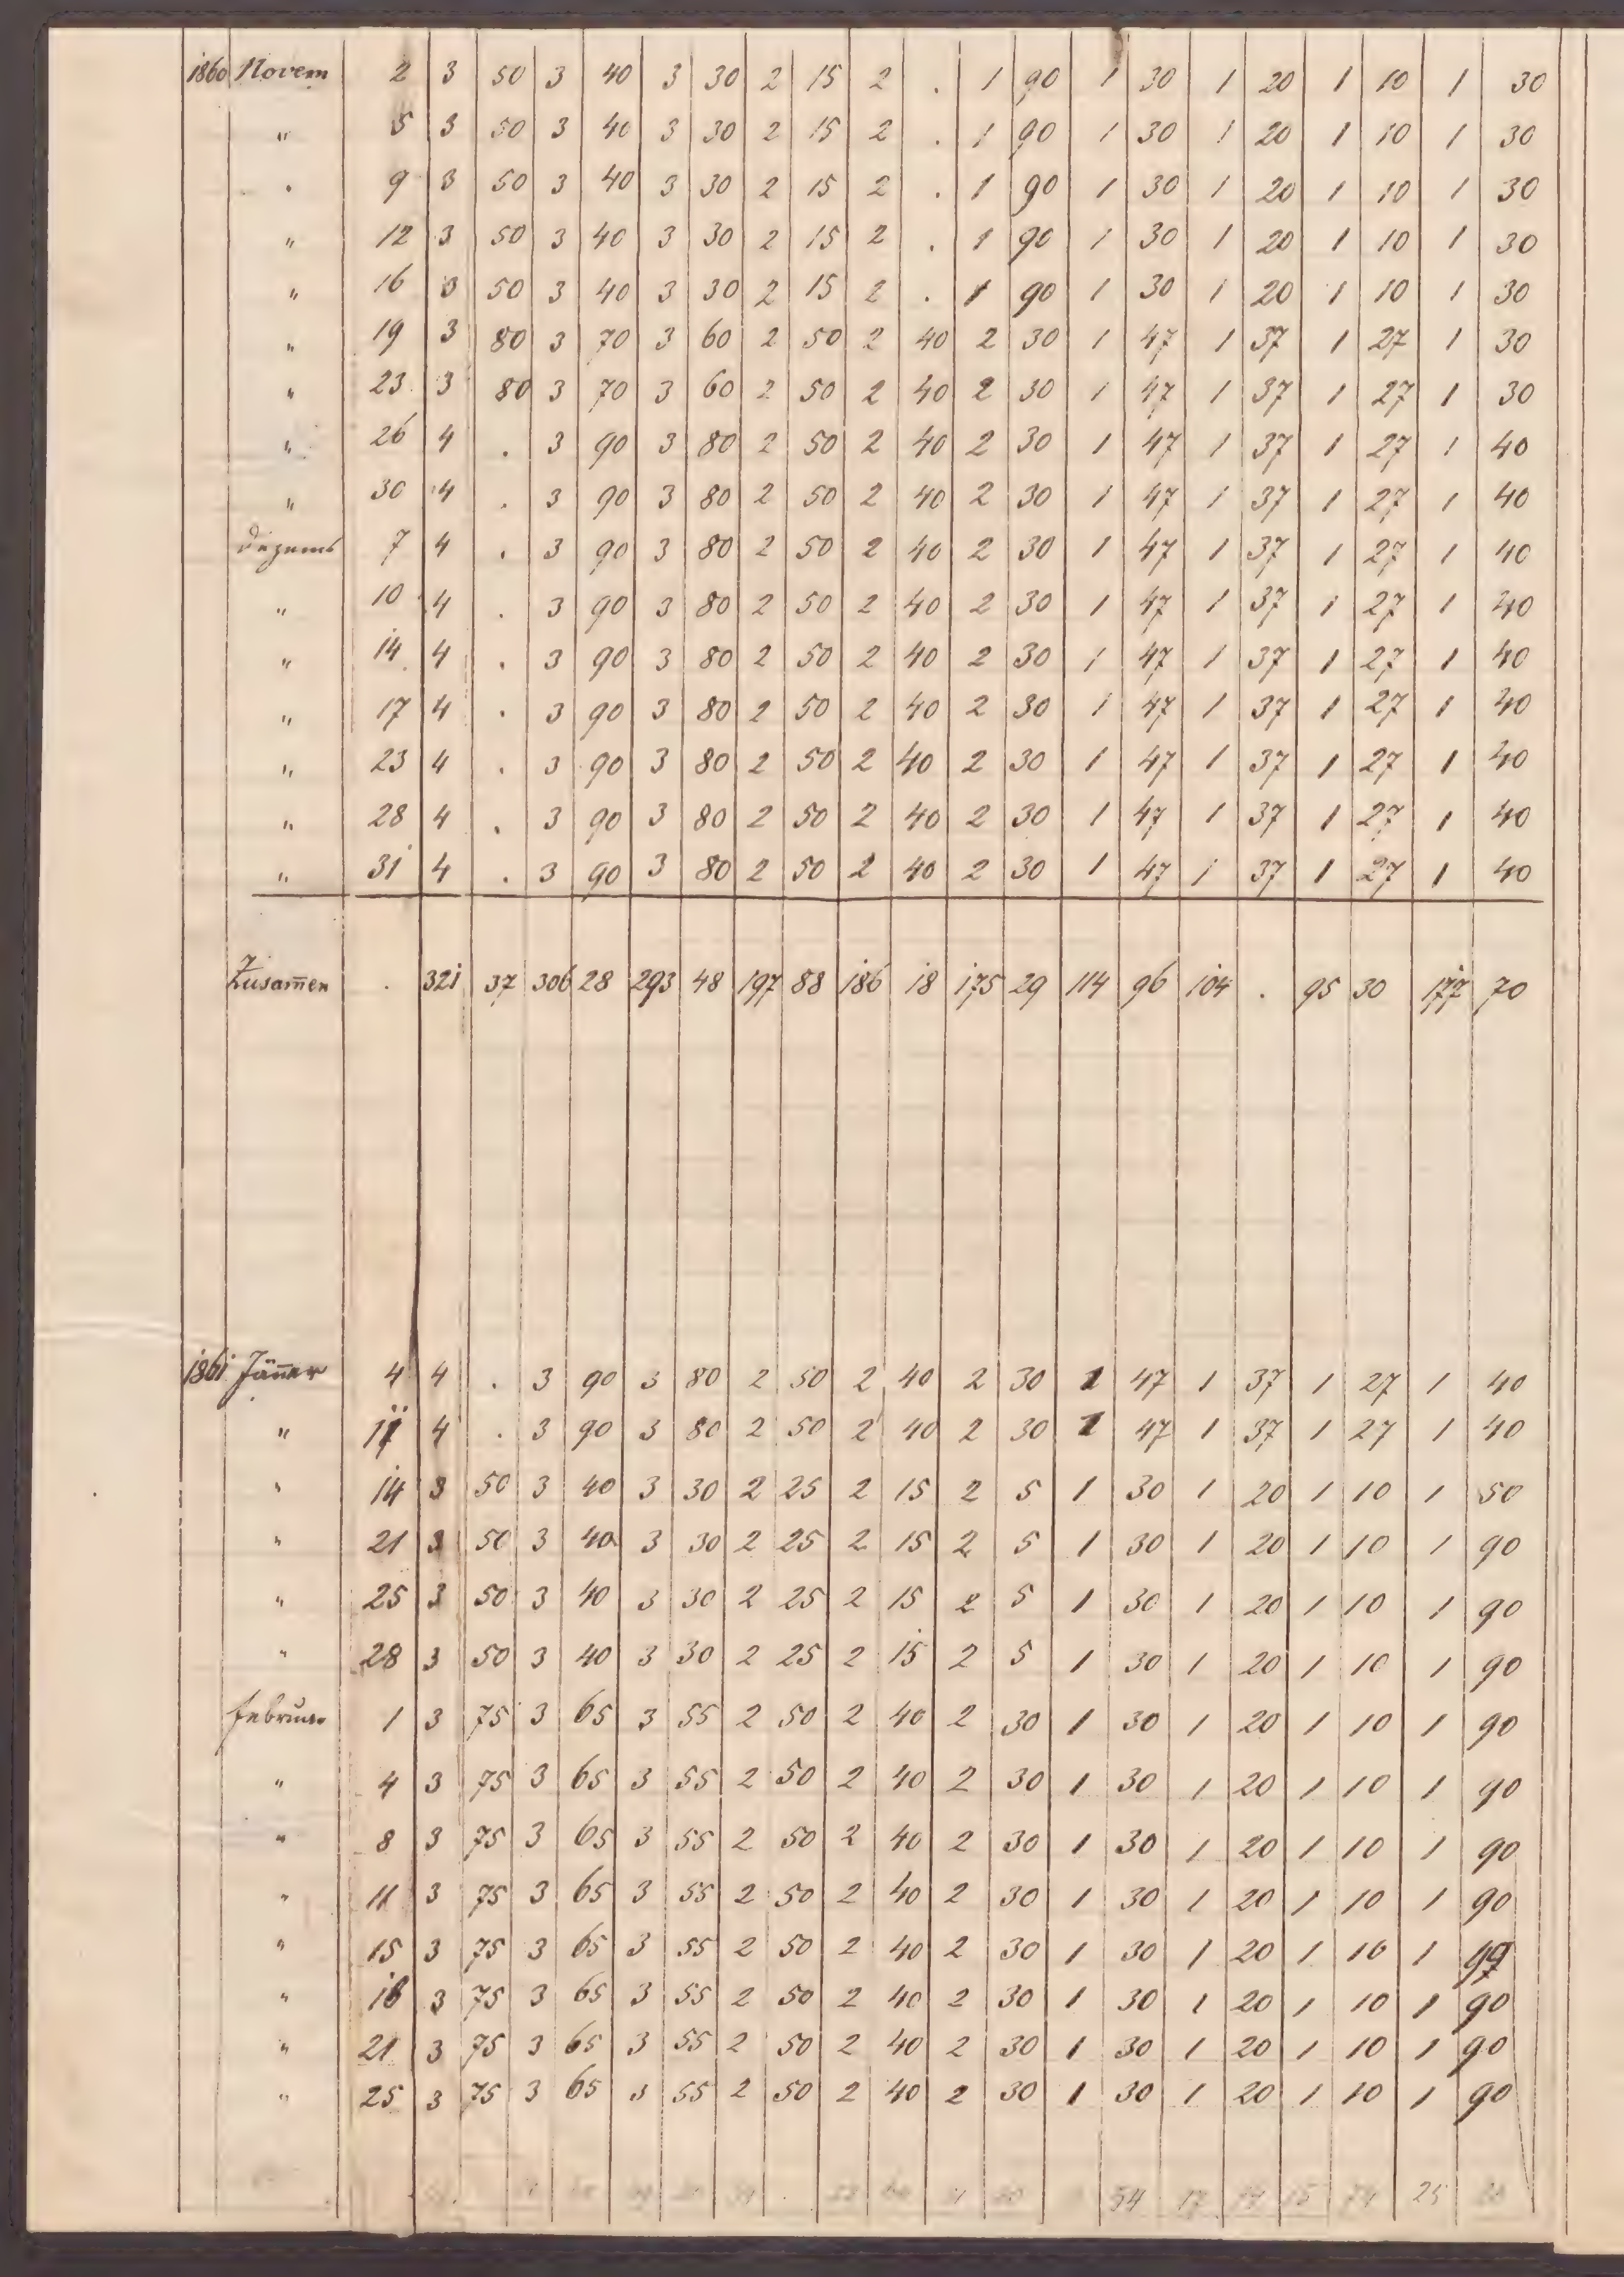 1860 Novem 2 3 50 3 40 3 30 2 15 2 . 1 90 1 30 1 20 1 10 1 30
" 5 3 50 3 40 3 30 2 15 2 . 1 90 1 30 1 20 1 10 1 30
" 9 3 50 3 40 3 30 2 15 2 . 1 90 1 30 1 20 1 10 1 30
" 12 3 50 3 40 3 30 2 15 2 . 1 90 1 30 1 20 1 10 1 30
" 16 3 50 3 40 3 30 2 15 2 . 1 90 1 30 1 20 1 10 1 30
" 19 3 80 3 70 3 60 2 50 2 40 2 30 1 47 1 37 1 27 1 30
" 23 3 80 3 70 3 60 2 50 2 40 2 30 1 47 1 37 1 27 1 30
" 26 4 . 3 90 3 80 2 50 2 40 2 30 1 47 1 37 1 27 1 40
" 30 4 . 3 90 3 80 2 50 2 40 2 30 1 47 1 37 1 27 1 40
Dezemb 7 4 . 3 90 3 80 2 50 2 40 2 30 1 47 1 37 1 27 1 40
" 10 4 . 3 90 3 80 2 50 2 40 2 30 1 47 1 37 1 27 1 40
" 14 4 . 3 90 3 80 2 50 2 40 2 30 1 47 1 37 1 27 1 40
" 17 4 . 3 90 3 80 2 50 2 40 2 30 1 47 1 37 1 27 1 40
" 23 4 . 3 90 3 80 2 50 2 40 2 30 1 47 1 37 1 27 1 40
" 28 4 . 3 90 3 80 2 50 2 40 2 30 1 47 1 37 1 27 1 40
" 31 4 . 3 90 3 80 2 50 2 40 2 30 1 47 1 37 1 27 1 40
Zusam̅en . 321 37 306 28 293 48 197 88 186 18 175 29 114 96 104 . 95 30 177 70
1861 Jän̅er 4 4 . 3 90 3 80 2 50 2 40 2 30 1 47 1 37 1 27 1 40
" 11 4 . 3 90 3 80 2 50 2 40 2 30 1 47 1 37 1 27 1 40
" 14 3 50 3 40 3 30 2 25 2 15 2 5 1 30 1 20 1 10 1 50
" 21 3 50 3 40 3 30 2 25 2 15 2 5 1 30 1 20 1 10 1 90
" 25 3 50 3 40 3 30 2 25 2 15 2 5 1 30 1 20 1 10 1 90
" 28 3 50 3 40 3 30 2 25 2 15 2 5 1 30 1 20 1 10 1 90
Februar 1 3 75 3 65 3 55 2 50 2 40 2 30 1 30 1 20 1 10 1 90
" 4 3 75 3 65 3 55 2 50 2 40 2 30 1 30 1 20 1 10 1 90
" 8 3 75 3 65 3 55 2 50 2 40 2 30 1 30 1 20 1 10 1 90
" 11 3 75 3 65 3 55 2 50 2 40 2 30 1 30 1 20 1 10 1 90
" 15 3 75 3 65 3 55 2 50 2 40 2 30 1 30 1 20 1 10 1 90
" 18 3 75 3 65 3 55 2 50 2 40 2 30 1 30 1 20 1 10 1 90
" 21 3 75 3 65 3 55 2 50 2 40 2 30 1 30 1 20 1 10 1 90
" 25 3 75 3 65 3 55 2 50 2 40 2 30 1 30 1 20 1 10 1 90
54 17 15 74 25